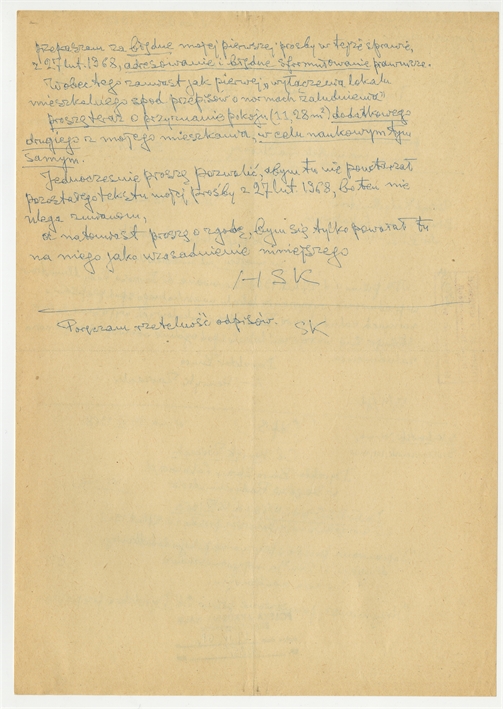 Przepraszam za błędne mojej pierwszej prośby w tejże sprawie,
z 27 lut. 1968, adresowanie i błędne sformułowanie prawnicze.
Wobec tego zamiast jak pierwej „wyłączenia lokalu
mieszkalnego spod przepisów o normach zaludnienia"
proszę teraz o przyznanie pokoju (11,28 m²) dodatkowego
drugiego z mojego mieszkania, w celu naukowym tym
samym.
Jednocześnie proszę pozwolić, abym tu nie powtarzał
pozostałego tekstu mojej prośby z 27 lut. 1968, bo ten nie
ulega zmianom,
a natomiast proszę o zgodę, bym się tylko powołał tu
na niego jako uzasadnienie niniejszego
HSK
Poręczam rzetelność odpisów. SK